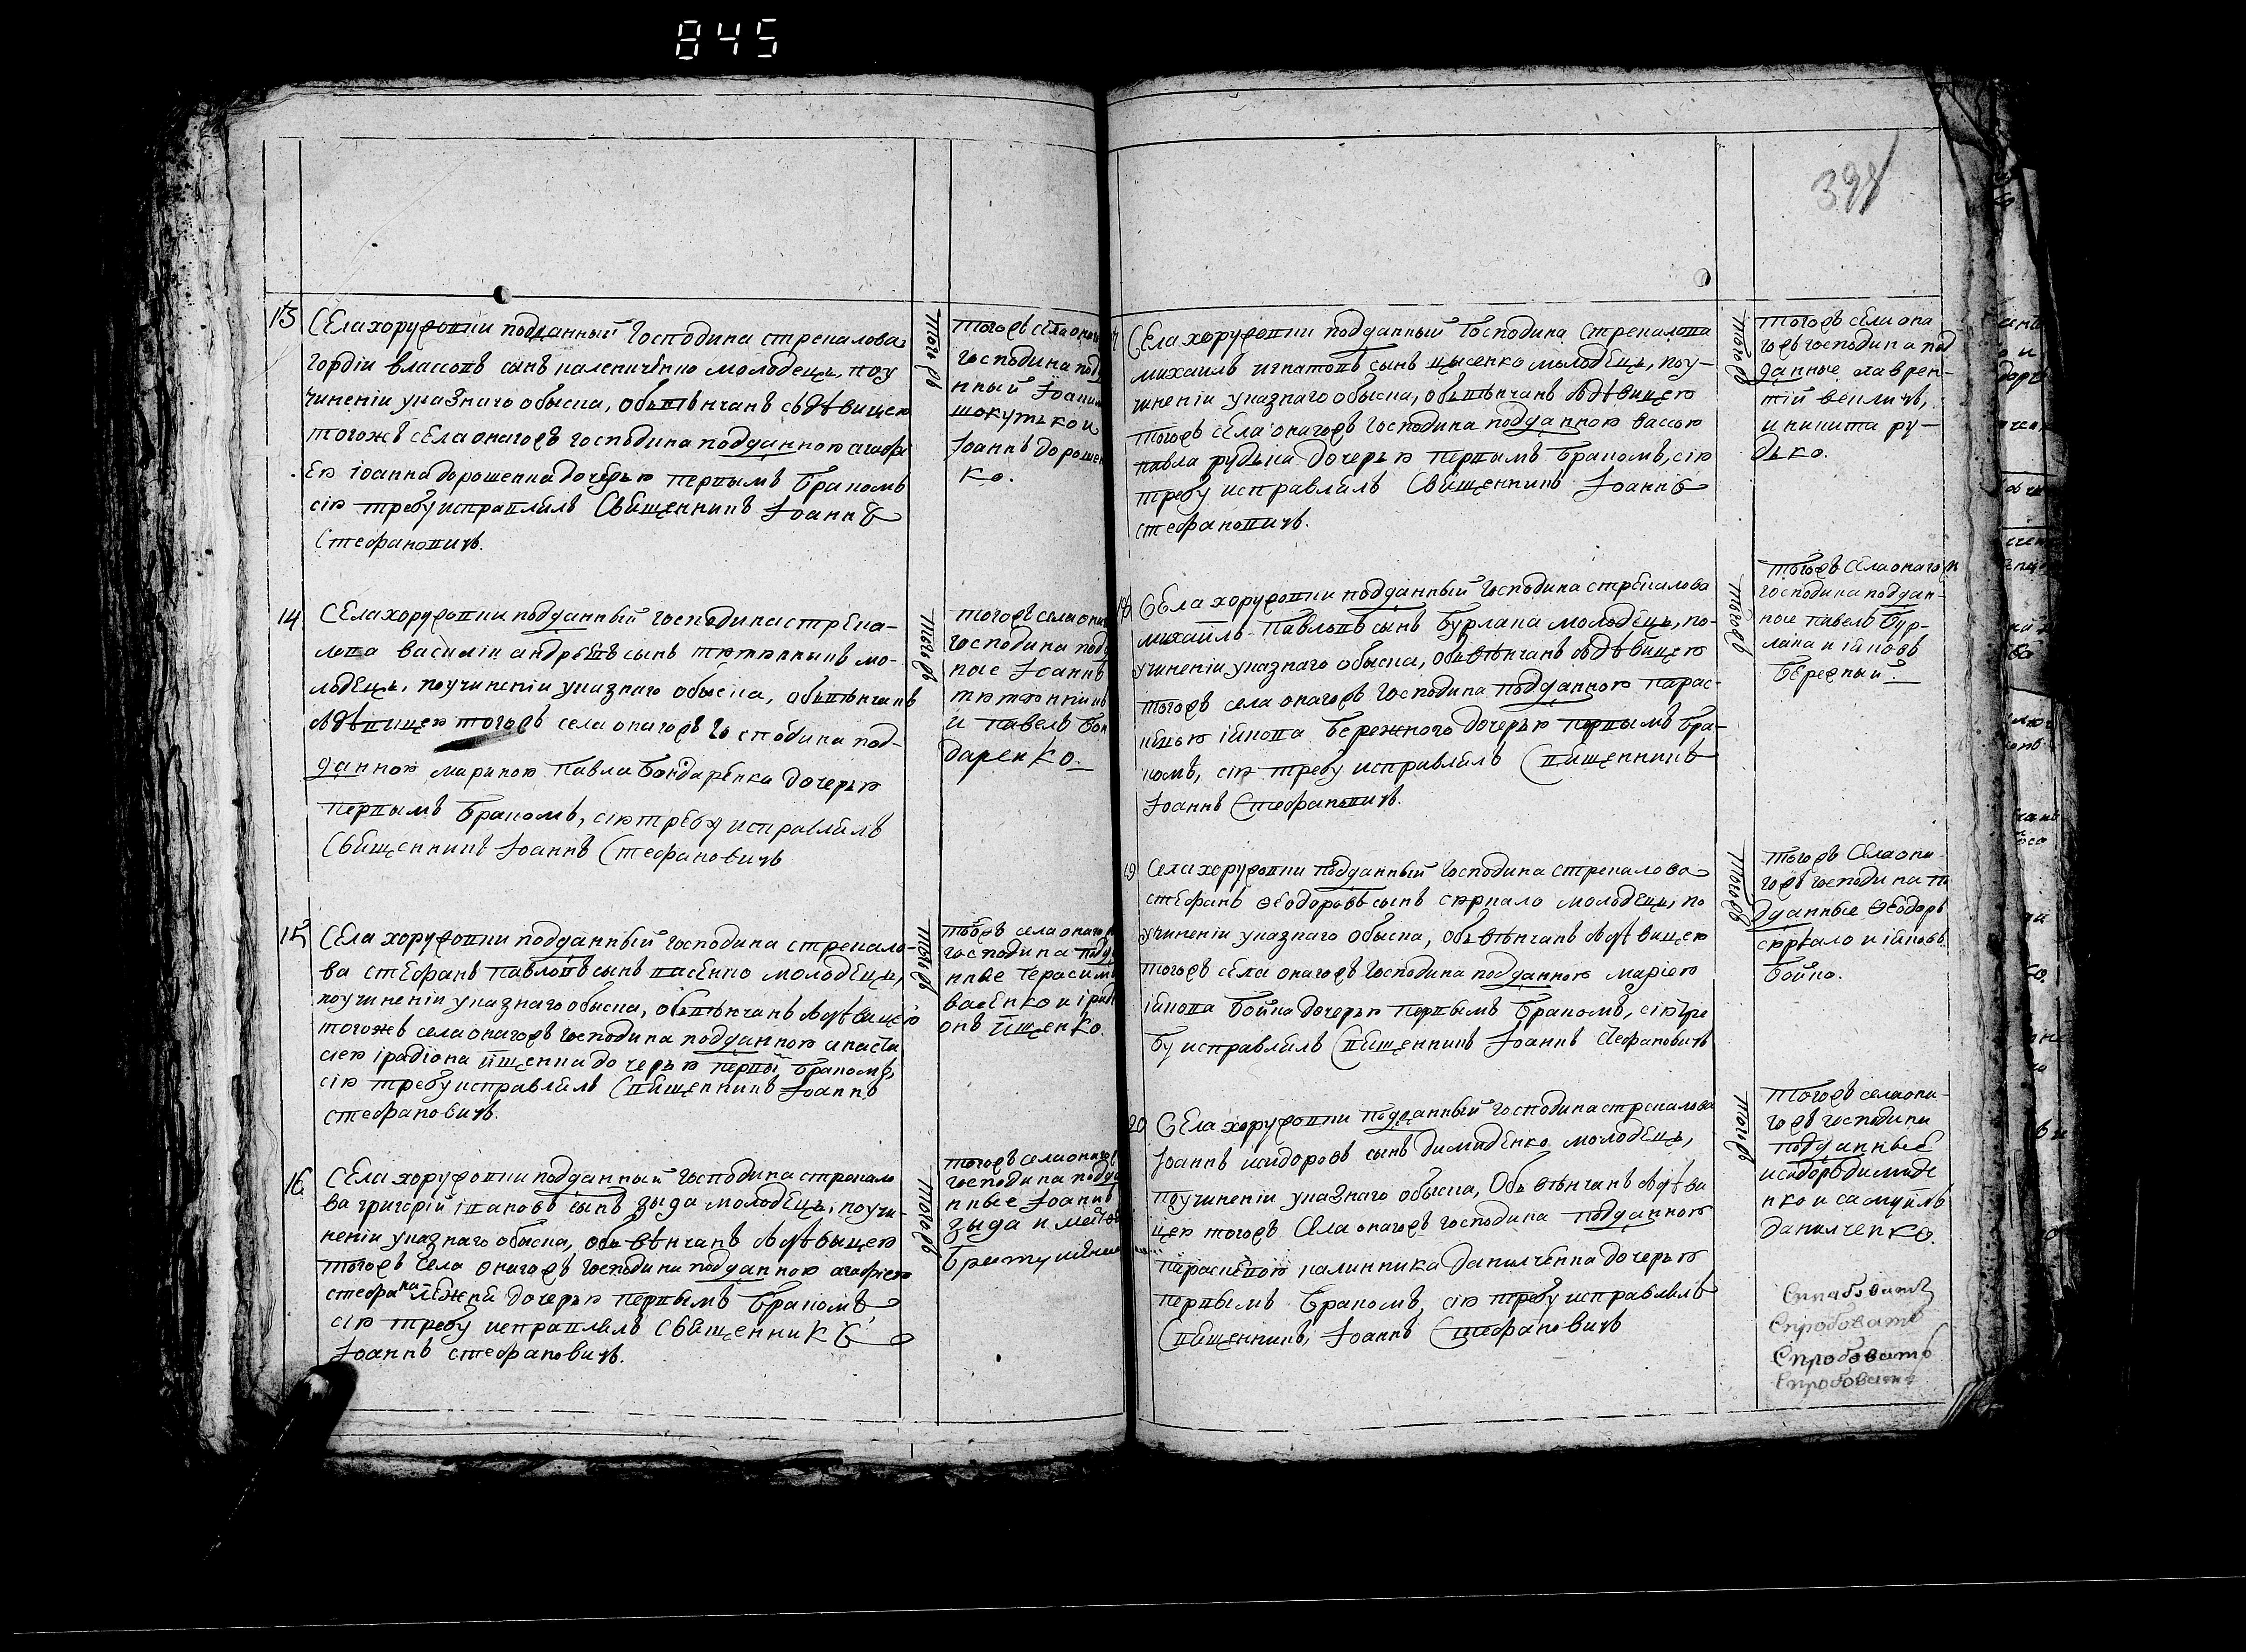 845
398
13
Села хоружовки подданный господина стрекалова
гордїи влассовъ сынъ калениченко молодецъ, поу
чиненїи указнаго обыска, обьвѣнчанъ сьдѣвицею
тогожъ села онагожъ господинаподданною агафи
ею іоанна дорошенка дочерью первымъ бракомъ
сїю требу исправлялъ Священникъ Іоаннъ
Стефановичъ.
тогожъ
тогожъ села онаго
господина подд
нный Іоаннъ
шокутько и
Іоаннъ дорошен
ко.
14
Села хоружовки подданный господина стрека-
лова василїи андрѣевъ сынъ тютюнникъ мо-
лодецъ, поучиненїи указнаго обыска, обьвѣнчанъ
здѣвицею тогожъ села онагожъ господина под-
данною мариною Павла бондаренка дочерью
первымъ бракомъ, сїю требу исправлялъ
Священникъ Іоаннъ Стефановичъ
тогожъ
тогожъ села она
господина подд
ные Іоаннъ
тютюнникъ
и павелъ бон
даренко.
15
Села хоружовки подданный господина стрекало-
ва стефанъ павловъ сынъ васенко молодецъ,
поучиненїи указнаго обыска, обьвѣнчанъ здѣвицею
тогожъ села онагожъ господина подданною анаста
сїею ірадїона ищенка дочерью первы бракомъ,
сїю требу исправлялъ Священникъ Іоаннъ
стефановичъ.
тогожъ
тогожъ села онаго
господина подд
нные герасимъ
васенко и ірад
онъ ищенко.
16
Села хоружовки подданный господина стрекало
ва григорїй івановъ сынъ зыда молодецъ, поучи-
ненїи указнаго обыска, обьвѣнчанъ здѣвыцею
тогожъ села онагожъ господина подданною агафїею
стефана лѣжнй дочерью первымъ бракомъ
сїю требу исправлялъ священникъ
Іоаннъ стефановичъ.
тогожъ
тогожъ села онаго
господина подда
нные Іоаннъ
зыда и
Села хоружовки подданный господина стрекалова
михаилъ игнатовъ сынъ цысенко молодецъ, поу-
чиненїи указнаго обыска, обьвѣнчанъ здѣвицею
тогожъ села онагожъ господина подданною вассою
павла рудька дочерью первымъ бракомъ, сїю
требу исправлялъ Священникъ Іоаннъ
стефановичъ.
тогожъ
тогожъ села она
гожъ господина под
данные лаврен-
тїй величъ,
и никита ру-
дько.
18
Села хоружовки подданный господина стрекалова
михаилъ Павловъ сынъ бурлака молодецъ, по-
учиненїи указнаго обыска, обьвѣнчанъ здѣвицею
тогожъ села онагожъ господина подданною парас-
кївою іякова бережного дочерью первымъ бра-
комъ, сїю требу исправлялъ Священникъ
Іоаннъ Стефановичъ.
тогожъ
тогожъ села онагож
господина поддан-
ные павелъ бур-
лака и іяковъ
бережный.
19
Села хоружовки подданный господина стрекалова
стефанъ Ѳеодоровъ сынъ скркало молодецъ, по
учиненїи указнаго обыска, обьвѣнчанъ здѣвицею
тогожъ села онагожъ господина подданною марїею
іякова бойка дочерью первымъ бракомъ, сїю тре
бу исправлялъ Священникъ Іоаннъ Стефановичъ
тогожъ
тогожъ села она-
гожъ господина по
дданные Ѳеодоръ
скркало и іяковъ
бойко.
20
Села хоружовки подданный господина стрекалова
Іоаннъ исидоровъ сынъ димиденко молодецъ,
поучиненїи указнаго обыска, обьвѣнчанъ здѣви
цею тогожъ села онагожъ господина подданною
параскевою калинника данилченка дочерью
первымъ бракомъ, сїю требу исправлялъ
Священникъ, Іоаннъ Стефановичъ
тогожъ
тогожъ села она-
гожъ господина
подданные
исидоръ димиде
нко и самуилъ
данилченко.
Спробовать
Спробовать
Спробовать